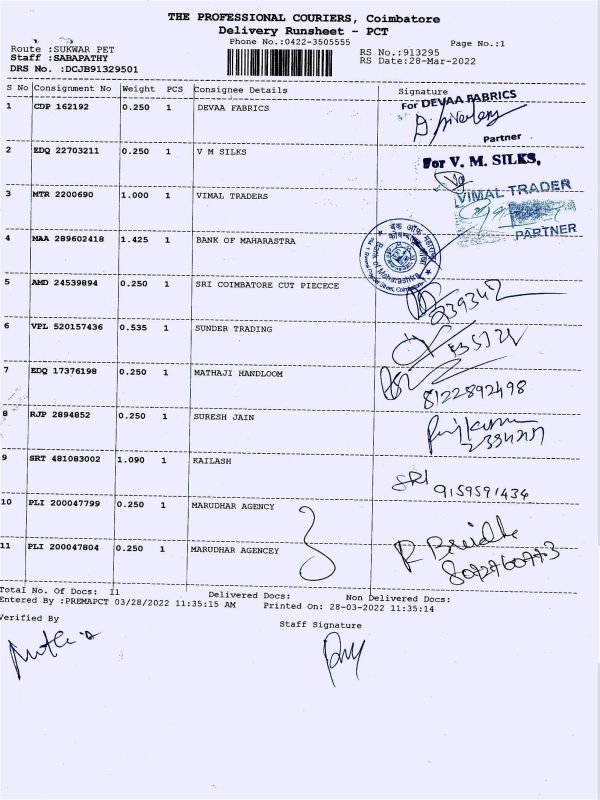 THE PROFESSIONAL COURIERS, Coimbatore
Delivery Runsheet - PCT
Phone No.:0422-3505555 Page No.:1
Route :SUKWAR PET RS No.:913295
Staff :SABAPATHY RS Date:28-Mar-2022
DRS No. :DCJB91329501
S No Consignment No Weight PCS Consignee Details Signature
1 CDP 162192 0.250 1 DEVAA FABRICS For DEVAA FABRICS
Partner
2 EDQ 22703211 0.250 1 V M SILKS For V. M. SILKS,
3 MTR 2200690 1.000 1 VIMAL TRADERS VIMAL TRADER
PARTNER
4 MAA 289602418 1.425 1 BANK OF MAHARASTRA Bank of Maharashtra
5 AMD 24539894 0.250 1 SRI COIMBATORE CUT PIECECE
239342
6 VPL 520157436 0.535 1 SUNDER TRADING
7 EDQ 17376198 0.250 1 MATHAJI HANDLOOM
8122892498
8 RJP 2894852 0.250 1 SURESH JAIN
9 SRT 481083002 1.090 1 KAILASH
SRI 9159591434
10 PLI 200047799 0.250 1 MARUDHAR AGENCY
11 PLI 200047804 0.250 1 MARUDHAR AGENCEY
Total No. Of Docs: 11 Delivered Docs: Non Delivered Docs:
Entered By :PREMAPCT 03/28/2022 11:35:15 AM Printed On: 28-03-2022 11:35:14
Verified By Staff Signature